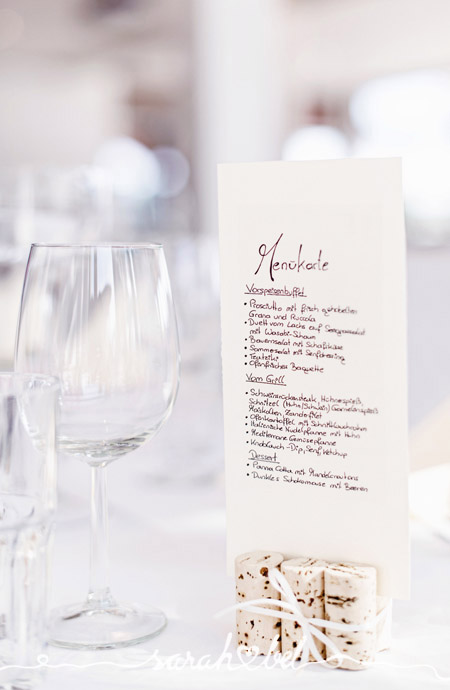 Menükarte
Vorspeisenbuffet
• Prosciutto mit frisch gehobelten
Grana und Ruccola
• Duett vom Lachs auf Seegrassalat
mit Wasabi-Schaum
• Bauernsalat mit Schafskäse
• Sommersalat mit Senfdressing
• Tsatsiki
• Ofenfrisches Baguette
Vom Grill
• Schweinsrückensteak, Hühnerspieß,
Schnitzel (Huhn/Schwein) Garnelenspieß
Maiskolben, Zanderfilet
• Ofenkartoffel mit Schnittlauchrahm
• Italienische Nudelpfanne mit Huhn
• Mediterrane Gemüsepfanne
• Knoblauch-Dip, Senf, Ketchup
Dessert
• Panna Cotta mit Mandelcroutons
• Dunkles Schokomousse mit Beeren
sarah bel